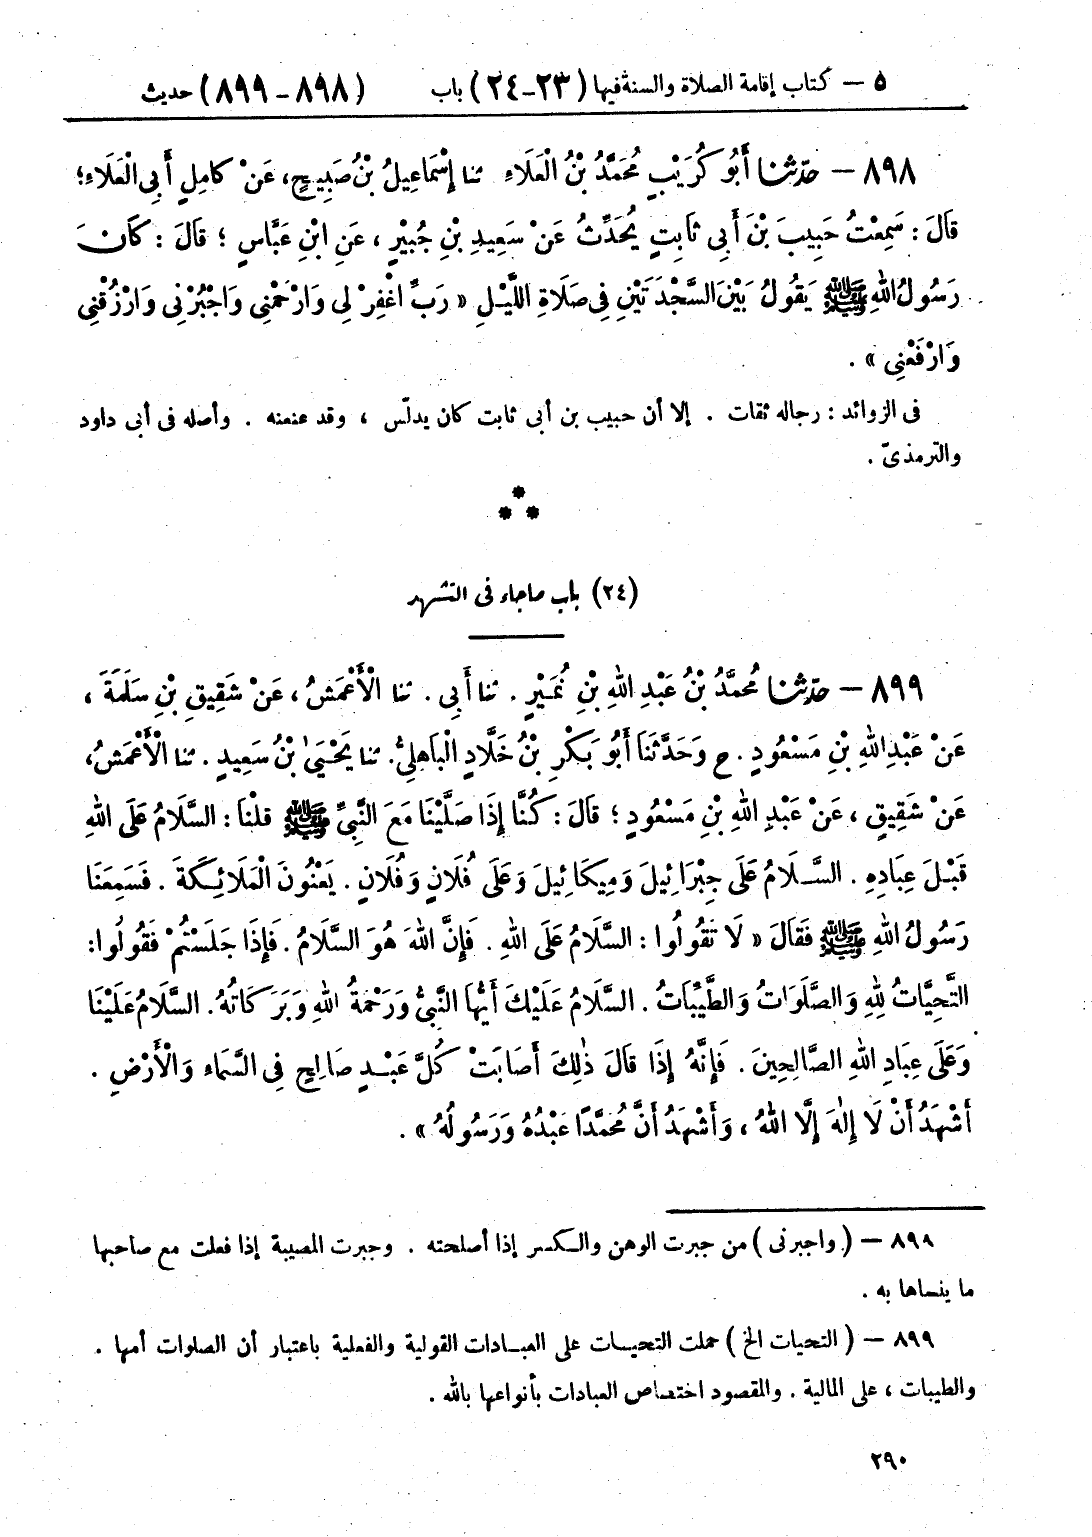 ٥ – كتاب إقامة الصلاة والسنة فيها (٢٣-٢٤) باب (٨٩٨-٨٩٩) حديث
٨٩٨ – حدّثنا أَبُو كُرَيْبٍ مُحَمَّدُ بْنُ الْعَلَاءِ ثنا إِسْمَاعِيلُ بْنُ صَبِيحٍ، عَنْ كَامِلٍ أَبِي الْعَلَاءِ؛
قَالَ: سَمِعْتُ حَبِيبَ بْنَ أَبِي ثَابِتٍ يُحَدِّثُ عَنْ سَعِيدِ بْنِ جُبَيْرٍ، عَنِ ابْنِ عَبَّاسٍ؛ قَالَ: كَانَ
رَسُولُ اللهِ ﷺ يَقُولُ بَيْنَ السَّجْدَتَيْنِ فِي صَلَاةِ اللَّيْلِ «رَبِّ اغْفِرْ لِي وَارْحَمْنِي وَاجْبُرْنِي وَارْزُقْنِي
وَارْفَعْنِي».
فى الزوائد: رجاله ثقات. إلا أن حبيب بن أبى ثابت كان يدلّس، وقد عنعنه. وأصله فى أبى داود
والترمذىّ.
***
(٢٤) باب ماجاء فى التشهد
٨٩٩ – حدّثنا مُحَمَّدُ بْنُ عَبْدِ اللهِ بْنِ نُمَيْرٍ. ثنا أَبِي. ثنا الْأَعْمَشُ، عَنْ شَقِيقِ بْنِ سَلَمَةَ،
عَنْ عَبْدِ اللهِ بْنِ مَسْعُودٍ. ح وَحَدَّثَنَا أَبُو بَكْرِ بْنُ خَلَّادٍ الْبَاهِلِيُّ. ثنا يَحْيَىٰ بْنُ سَعِيدٍ. ثنا الْأَعْمَشُ،
عَنْ شَقِيقٍ، عَنْ عَبْدِ اللهِ بْنِ مَسْعُودٍ؛ قَالَ: كُنَّا إِذَا صَلَّيْنَا مَعَ النَّبِيِّ ﷺ قلْنَا: السَّلَامُ عَلَى اللهِ
قَبْلَ عِبَادِهِ. السَّلَامُ عَلَى جِبْرَائِيلَ وَمِيكَائِيلَ وَعَلَى فُلَانٍ وَفُلَانٍ. يَعْنُونَ الْمَلَائِكَةَ. فَسَمِعَنَا
رَسُولُ اللهِ ﷺ فَقَالَ «لَا تَقُولُوا: السَّلَامُ عَلَى اللهِ. فَإِنَّ اللهَ هُوَ السَّلَامُ. فَإِذَا جَلَسْتُمْ فَقُولُوا:
التَّحِيَّاتُ لِلهِ وَالصَّلَوَاتُ وَالطَّيِّبَاتُ. السَّلَامُ عَلَيْكَ أَيُّهَا النَّبِيُّ وَرَحْمَةُ اللهِ وَبَرَكَاتُهُ. السَّلَامُ عَلَيْنَا
وَعَلَى عِبَادِ اللهِ الصَّالِحِينَ. فَإِنَّهُ إِذَا قَالَ ذٰلِكَ أَصَابَتْ كُلَّ عَبْدٍ صَالِحٍ فِي السَّمَاءِ وَالْأَرْضِ.
أَشْهَدُ أَنْ لَا إِلٰهَ إِلَّا اللهُ، وَأَشْهَدُ أَنَّ مُحَمَّدًا عَبْدُهُ وَرَسُولُهُ».
٨٩٨ – (واجبرنى) من جبرت الوهن والكسر إذا أصلحته. وجبرت المصيبة إذا فعلت مع صاحبها
ما ينساها به.
٨٩٩ – (التحيات الخ) حملت التحيات على العبادات القولية والفعلية باعتبار أن الصلوات أمها.
والطيبات، على المالية. والمقصود اختصاص العبادات بأنواعها بالله.
٢٩٠